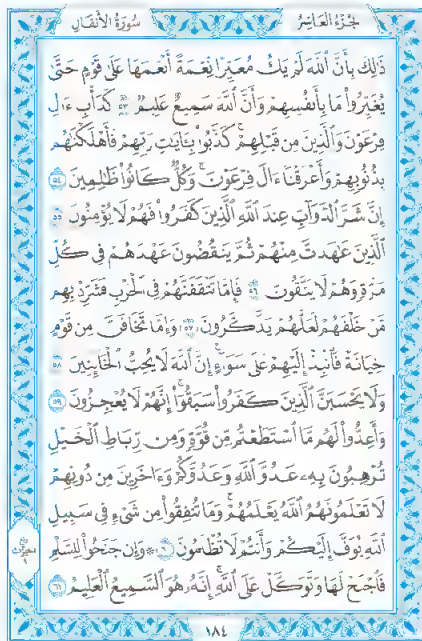 سُورَةُ الأَنفَالِ
الجُزْءُ العَاشِرُ
ذَٰلِكَ بِأَنَّ ٱللَّهَ لَمْ يَكُ مُغَيِّرًا نِّعْمَةً أَنْعَمَهَا عَلَىٰ قَوْمٍ حَتَّىٰ
يُغَيِّرُوا۟ مَا بِأَنفُسِهِمْ وَأَنَّ ٱللَّهَ سَمِيعٌ عَلِيمٌ ٥٣ كَدَأْبِ ءَالِ
فِرْعَوْنَ وَٱلَّذِينَ مِن قَبْلِهِمْ كَذَّبُوا۟ بِـَٔايَـٰتِ رَبِّهِمْ فَأَهْلَكْنَـٰهُم
بِذُنُوبِهِمْ وَأَغْرَقْنَآ ءَالَ فِرْعَوْنَ ۚ وَكُلٌّ كَانُوا۟ ظَـٰلِمِينَ ٥٤
إِنَّ شَرَّ ٱلدَّوَآبِّ عِندَ ٱللَّهِ ٱلَّذِينَ كَفَرُوا۟ فَهُمْ لَا يُؤْمِنُونَ ٥٥
ٱلَّذِينَ عَـٰهَدتَّ مِنْهُمْ ثُمَّ يَنقُضُونَ عَهْدَهُمْ فِى كُلِّ
مَرَّةٍ وَهُمْ لَا يَتَّقُونَ ٥٦ فَإِمَّا تَثْقَفَنَّهُمْ فِى ٱلْحَرْبِ فَشَرِّدْ بِهِم
مَّنْ خَلْفَهُمْ لَعَلَّهُمْ يَذَّكَّرُونَ ٥٧ وَإِمَّا تَخَافَنَّ مِن قَوْمٍ
خِيَانَةً فَٱنۢبِذْ إِلَيْهِمْ عَلَىٰ سَوَآءٍ ۚ إِنَّ ٱللَّهَ لَا يُحِبُّ ٱلْخَآئِنِينَ ٥٨
وَلَا يَحْسَبَنَّ ٱلَّذِينَ كَفَرُوا۟ سَبَقُوٓا۟ ۚ إِنَّهُمْ لَا يُعْجِزُونَ ٥٩
وَأَعِدُّوا۟ لَهُم مَّا ٱسْتَطَعْتُم مِّن قُوَّةٍ وَمِن رِّبَاطِ ٱلْخَيْلِ
تُرْهِبُونَ بِهِۦ عَدُوَّ ٱللَّهِ وَعَدُوَّكُمْ وَءَاخَرِينَ مِن دُونِهِمْ
لَا تَعْلَمُونَهُمُ ٱللَّهُ يَعْلَمُهُمْ ۚ وَمَا تُنفِقُوا۟ مِن شَىْءٍ فِى سَبِيلِ
ٱللَّهِ يُوَفَّ إِلَيْكُمْ وَأَنتُمْ لَا تُظْلَمُونَ ٦٠ ۞ وَإِن جَنَحُوا۟ لِلسَّلْمِ
فَٱجْنَحْ لَهَا وَتَوَكَّلْ عَلَى ٱللَّهِ ۚ إِنَّهُۥ هُوَ ٱلسَّمِيعُ ٱلْعَلِيمُ ٦١
١٨٤